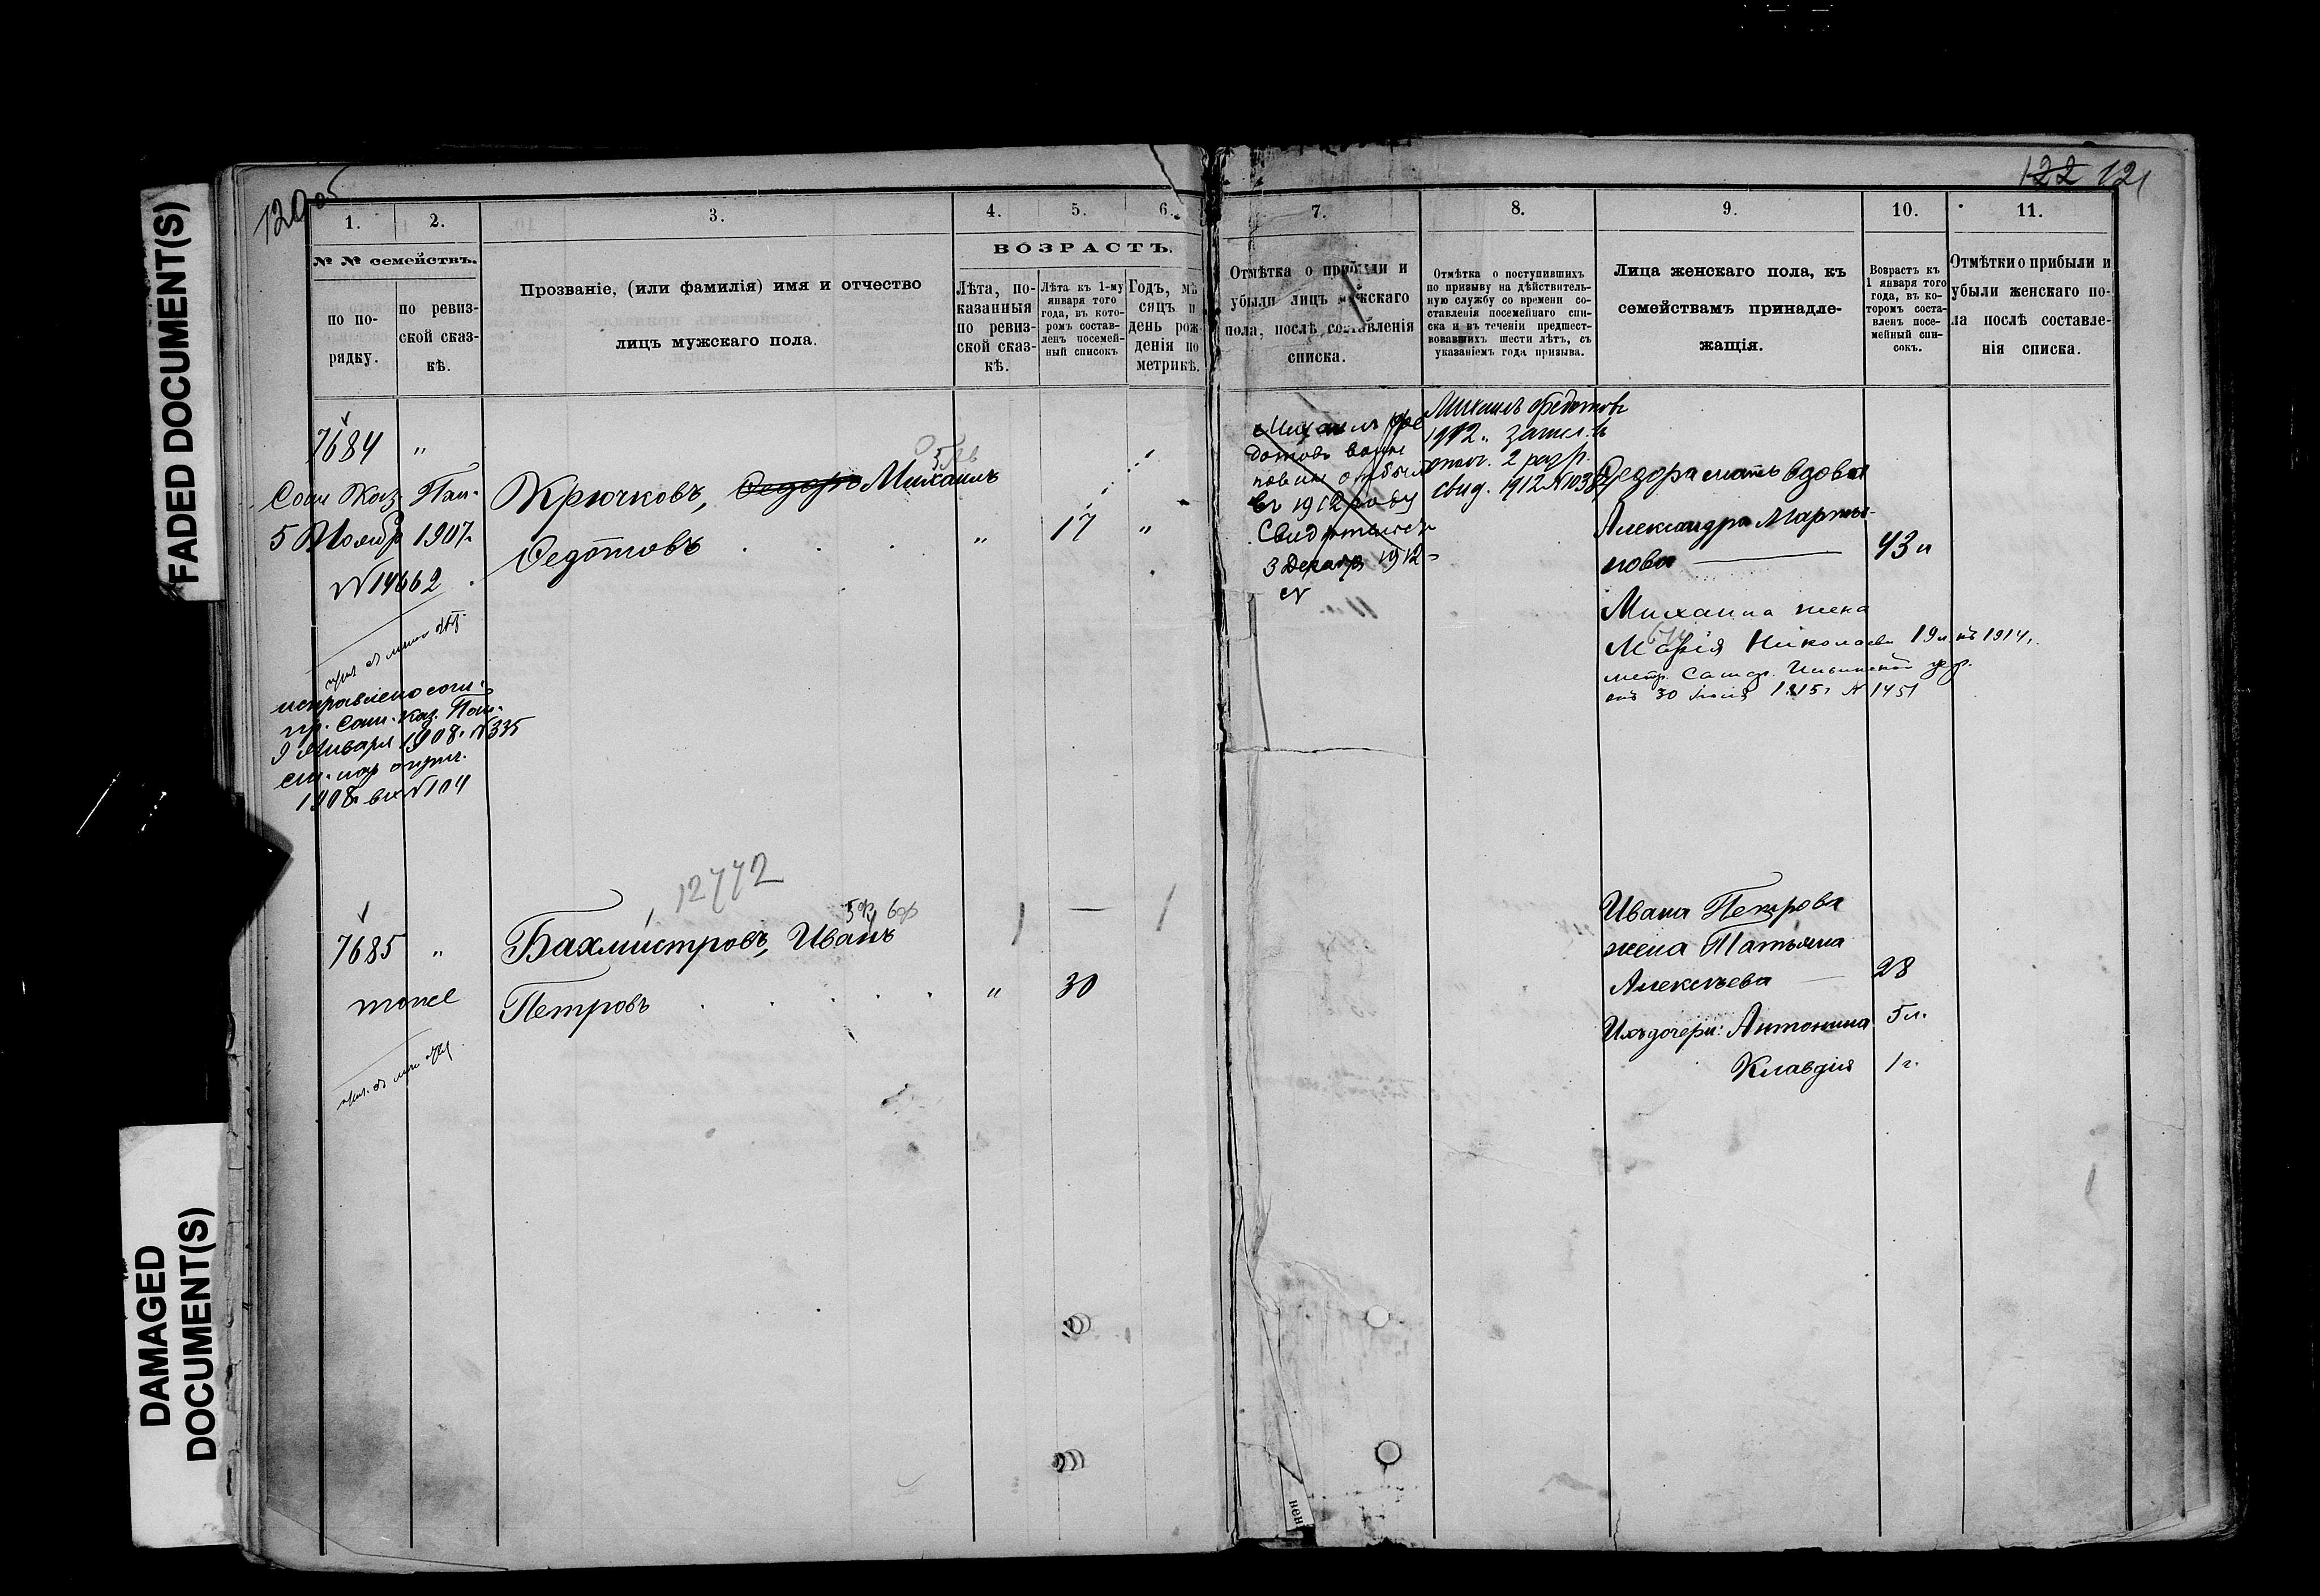 FADED DOCUMENT(S)
DAMAGED
DOCUMENT(S)
122 121
1.
2.
3.
4.
5.
6.
7.
8.
9.
10.
11.
№ № семействъ.
по по-
рядку.
по ревиз-
ской сказ-
кѣ.
Прозваніе, (или фамилія) имя и отчество
лицъ мужскаго пола.
ВОЗРАСТЪ.
Лѣта, по-
казанныя
по ревиз-
ской сказ-
кѣ.
Лѣта къ 1-му
января того
года, въ кото-
ромъ состав-
ленъ посемей-
ный списокъ
Годъ, мѣ
сяцъ и
день рож-
денія по
метрикѣ.
Отмѣтка о прибыли и
убыли лицъ мужскаго
пола, послѣ составленія
списка.
Отмѣтка о поступившихъ
по призыву на дѣйствитель-
ную службу со времени со-
ставленія посемейнаго спи-
ска и въ теченіи предшест-
вовавшихъ шести лѣтъ, съ
указаніемъ года призыва.
Лица женскаго пола, къ
семействамъ принадле-
жащія.
Возрастъ къ
1 января того
года, въ ко-
торомъ соста-
вленъ посе-
мейный спи-
сокъ.
Отмѣтки о прибыли и
убыли женскаго по-
ла послѣ составле-
нія списка.
7684 "
Соги Каз. Пал.
5 Ноябр 1907.
N 14662
исправлено согл.
пр. Сам. Каз. Пал.
9 Января 1908. N 335
1908. вх N 104
Крючковъ, Федоръ Михаилъ
Федотовъ . . . " 17 "
Михаилъ Фе
дотовъ воин
повин отбыл
въ 1912 году
Свидѣтельст
3 Декабр 1912
N
Михаилъ Федотовъ
1912. зачисл. въ
опол. 2 разр.
свид. 1912 N 1038
Федора мать вдова
Александра Марты-
нова 43 л
Михаила жена
Марія Николаев 19 л. къ 1914 г.
от 30 1915 г N 1451
12772
7685 "
тоже
Бахмистровъ, Иванъ
Петровъ . . . . . " 30
Ивана Петрова
жена Татьяна
Алексѣева 28
Ихъ дочери: Антонина 5 л.
Клавдія 1 г.